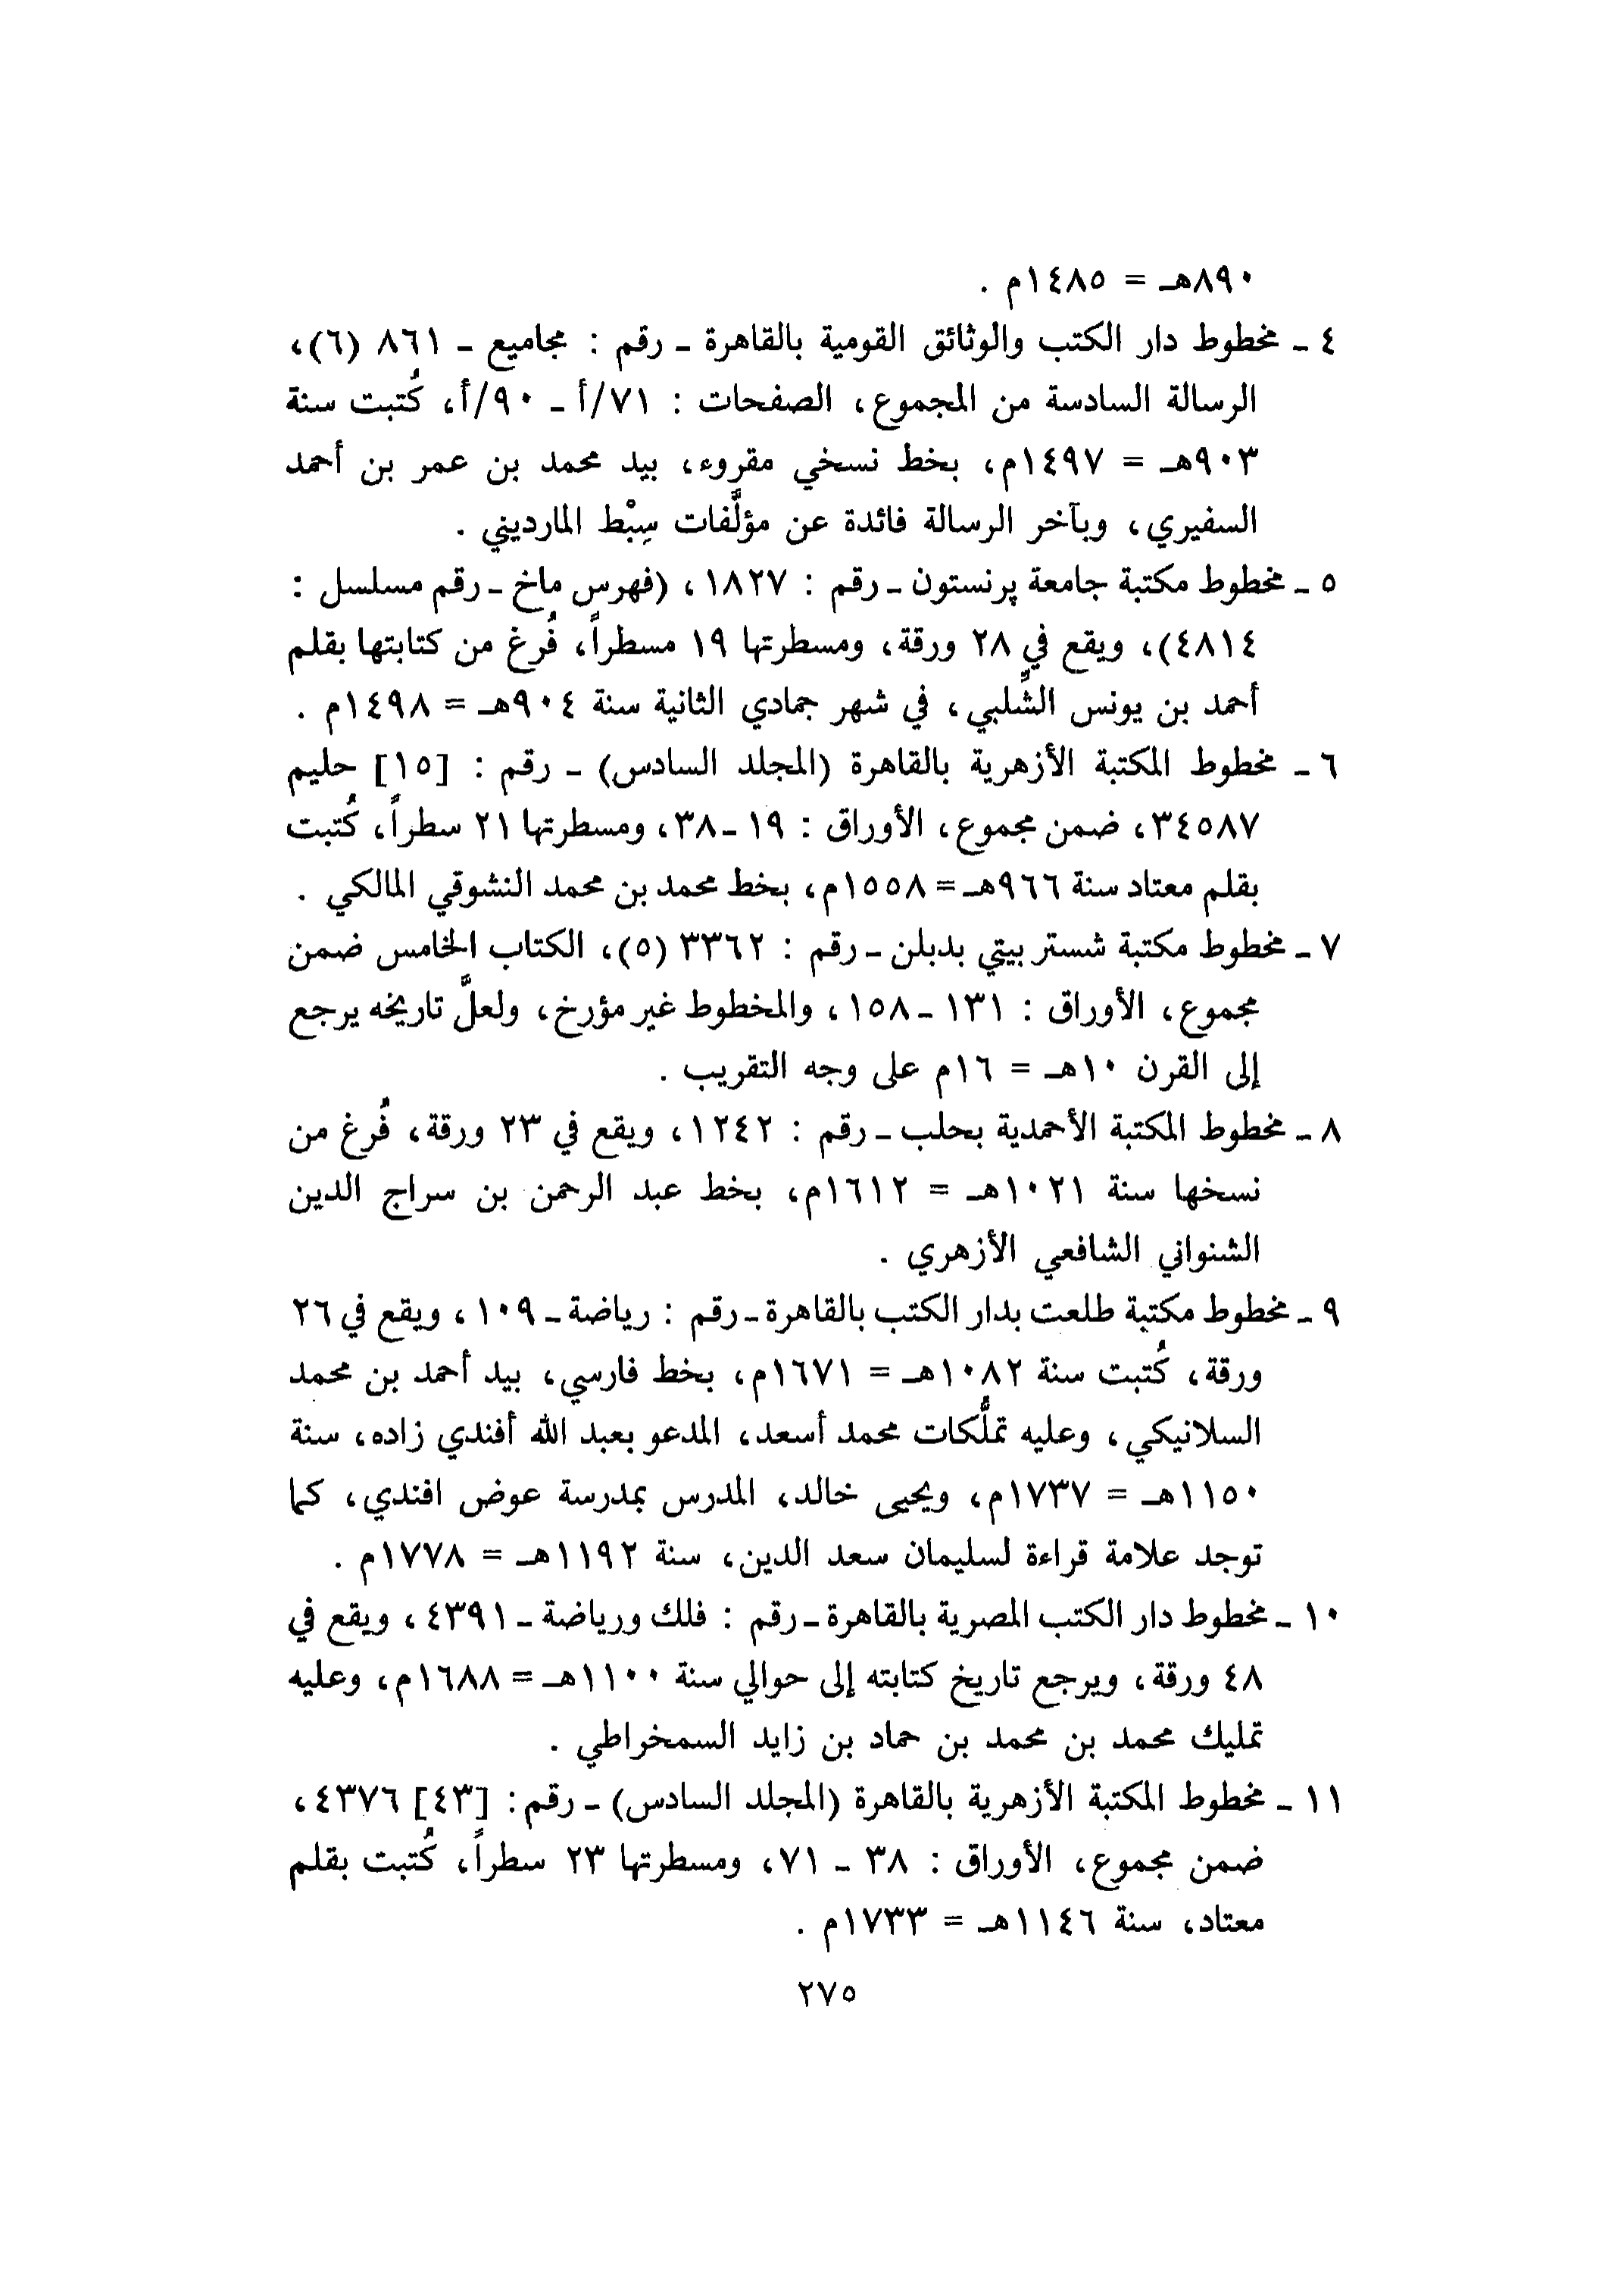 ٨٩٠هـ = ١٤٨٥م .
٤ ـ مخطوط دار الكتب والوثائق القومية بالقاهرة ـ رقم : مجاميع ـ ٨٦١ (٦)،
الرسالة السادسة من المجموع، الصفحات : ٧١/أ ـ ٩٠/أ، كُتبت سنة
٩٠٣هـ = ١٤٩٧م، بخط نسخي مقروء، بيد محمد بن عمر بن أحمد
السفيري، وبآخر الرسالة فائدة عن مؤلَّفات سِبْط المارديني .
٥ ـ مخطوط مكتبة جامعة پرنستون ـ رقم : ١٨٢٧، (فهرس ماخ ـ رقم مسلسل :
٤٨١٤)، ويقع في ٢٨ ورقة، ومسطرتها ١٩ مسطراً، فُرغ من كتابتها بقلم
أحمد بن يونس الشِّلبي، في شهر جمادي الثانية سنة ٩٠٤هـ = ١٤٩٨م .
٦ ـ مخطوط المكتبة الأزهرية بالقاهرة (المجلد السادس) ـ رقم : [١٥] حليم
٣٤٥٨٧، ضمن مجموع، الأوراق : ١٩ ـ ٣٨، ومسطرتها ٢١ سطراً، كُتبت
بقلم معتاد سنة ٩٦٦هـ = ١٥٥٨م، بخط محمد بن محمد النشوقي المالكي .
٧ ـ مخطوط مكتبة شستر بيتي بدبلن ـ رقم : ٣٣٦٢ (٥)، الكتاب الخامس ضمن
مجموع، الأوراق : ١٣١ ـ ١٥٨، والمخطوط غير مؤرخ، ولعلَّ تاريخه يرجع
إلى القرن ١٠هـ = ١٦م على وجه التقريب .
٨ ـ مخطوط المكتبة الأحمدية بحلب ـ رقم : ١٢٤٢، ويقع في ٢٣ ورقة، فُرغ من
نسخها سنة ١٠٢١هـ = ١٦١٢م، بخط عبد الرحمن بن سراج الدين
الشنواني الشافعي الأزهري .
٩ ـ مخطوط مكتبة طلعت بدار الكتب بالقاهرة ـ رقم : رياضة ـ ١٠٩، ويقع في ٢٦
ورقة، كُتبت سنة ١٠٨٢هـ = ١٦٧١م، بخط فارسي، بيد أحمد بن محمد
السلانيكي، وعليه تملُّكات محمد أسعد، المدعو بعبد الله أفندي زاده، سنة
١١٥٠هـ = ١٧٣٧م، ويحيى خالد، المدرس بمدرسة عوض افندي، كما
توجد علامة قراءة لسليمان سعد الدين، سنة ١١٩٢هـ = ١٧٧٨م .
١٠ ـ مخطوط دار الكتب المصرية بالقاهرة ـ رقم : فلك ورياضة ـ ٤٣٩١، ويقع في
٤٨ ورقة، ويرجع تاريخ كتابته إلى حوالي سنة ١١٠٠هـ = ١٦٨٨م، وعليه
تمليك محمد بن محمد بن حماد بن زايد السمخراطي .
١١ ـ مخطوط المكتبة الأزهرية بالقاهرة (المجلد السادس) ـ رقم : [٤٣] ٤٣٧٦،
ضمن مجموع، الأوراق : ٣٨ ـ ٧١، ومسطرتها ٢٣ سطراً، كُتبت بقلم
معتاد، سنة ١١٤٦هـ = ١٧٣٣م .
٢٧٥